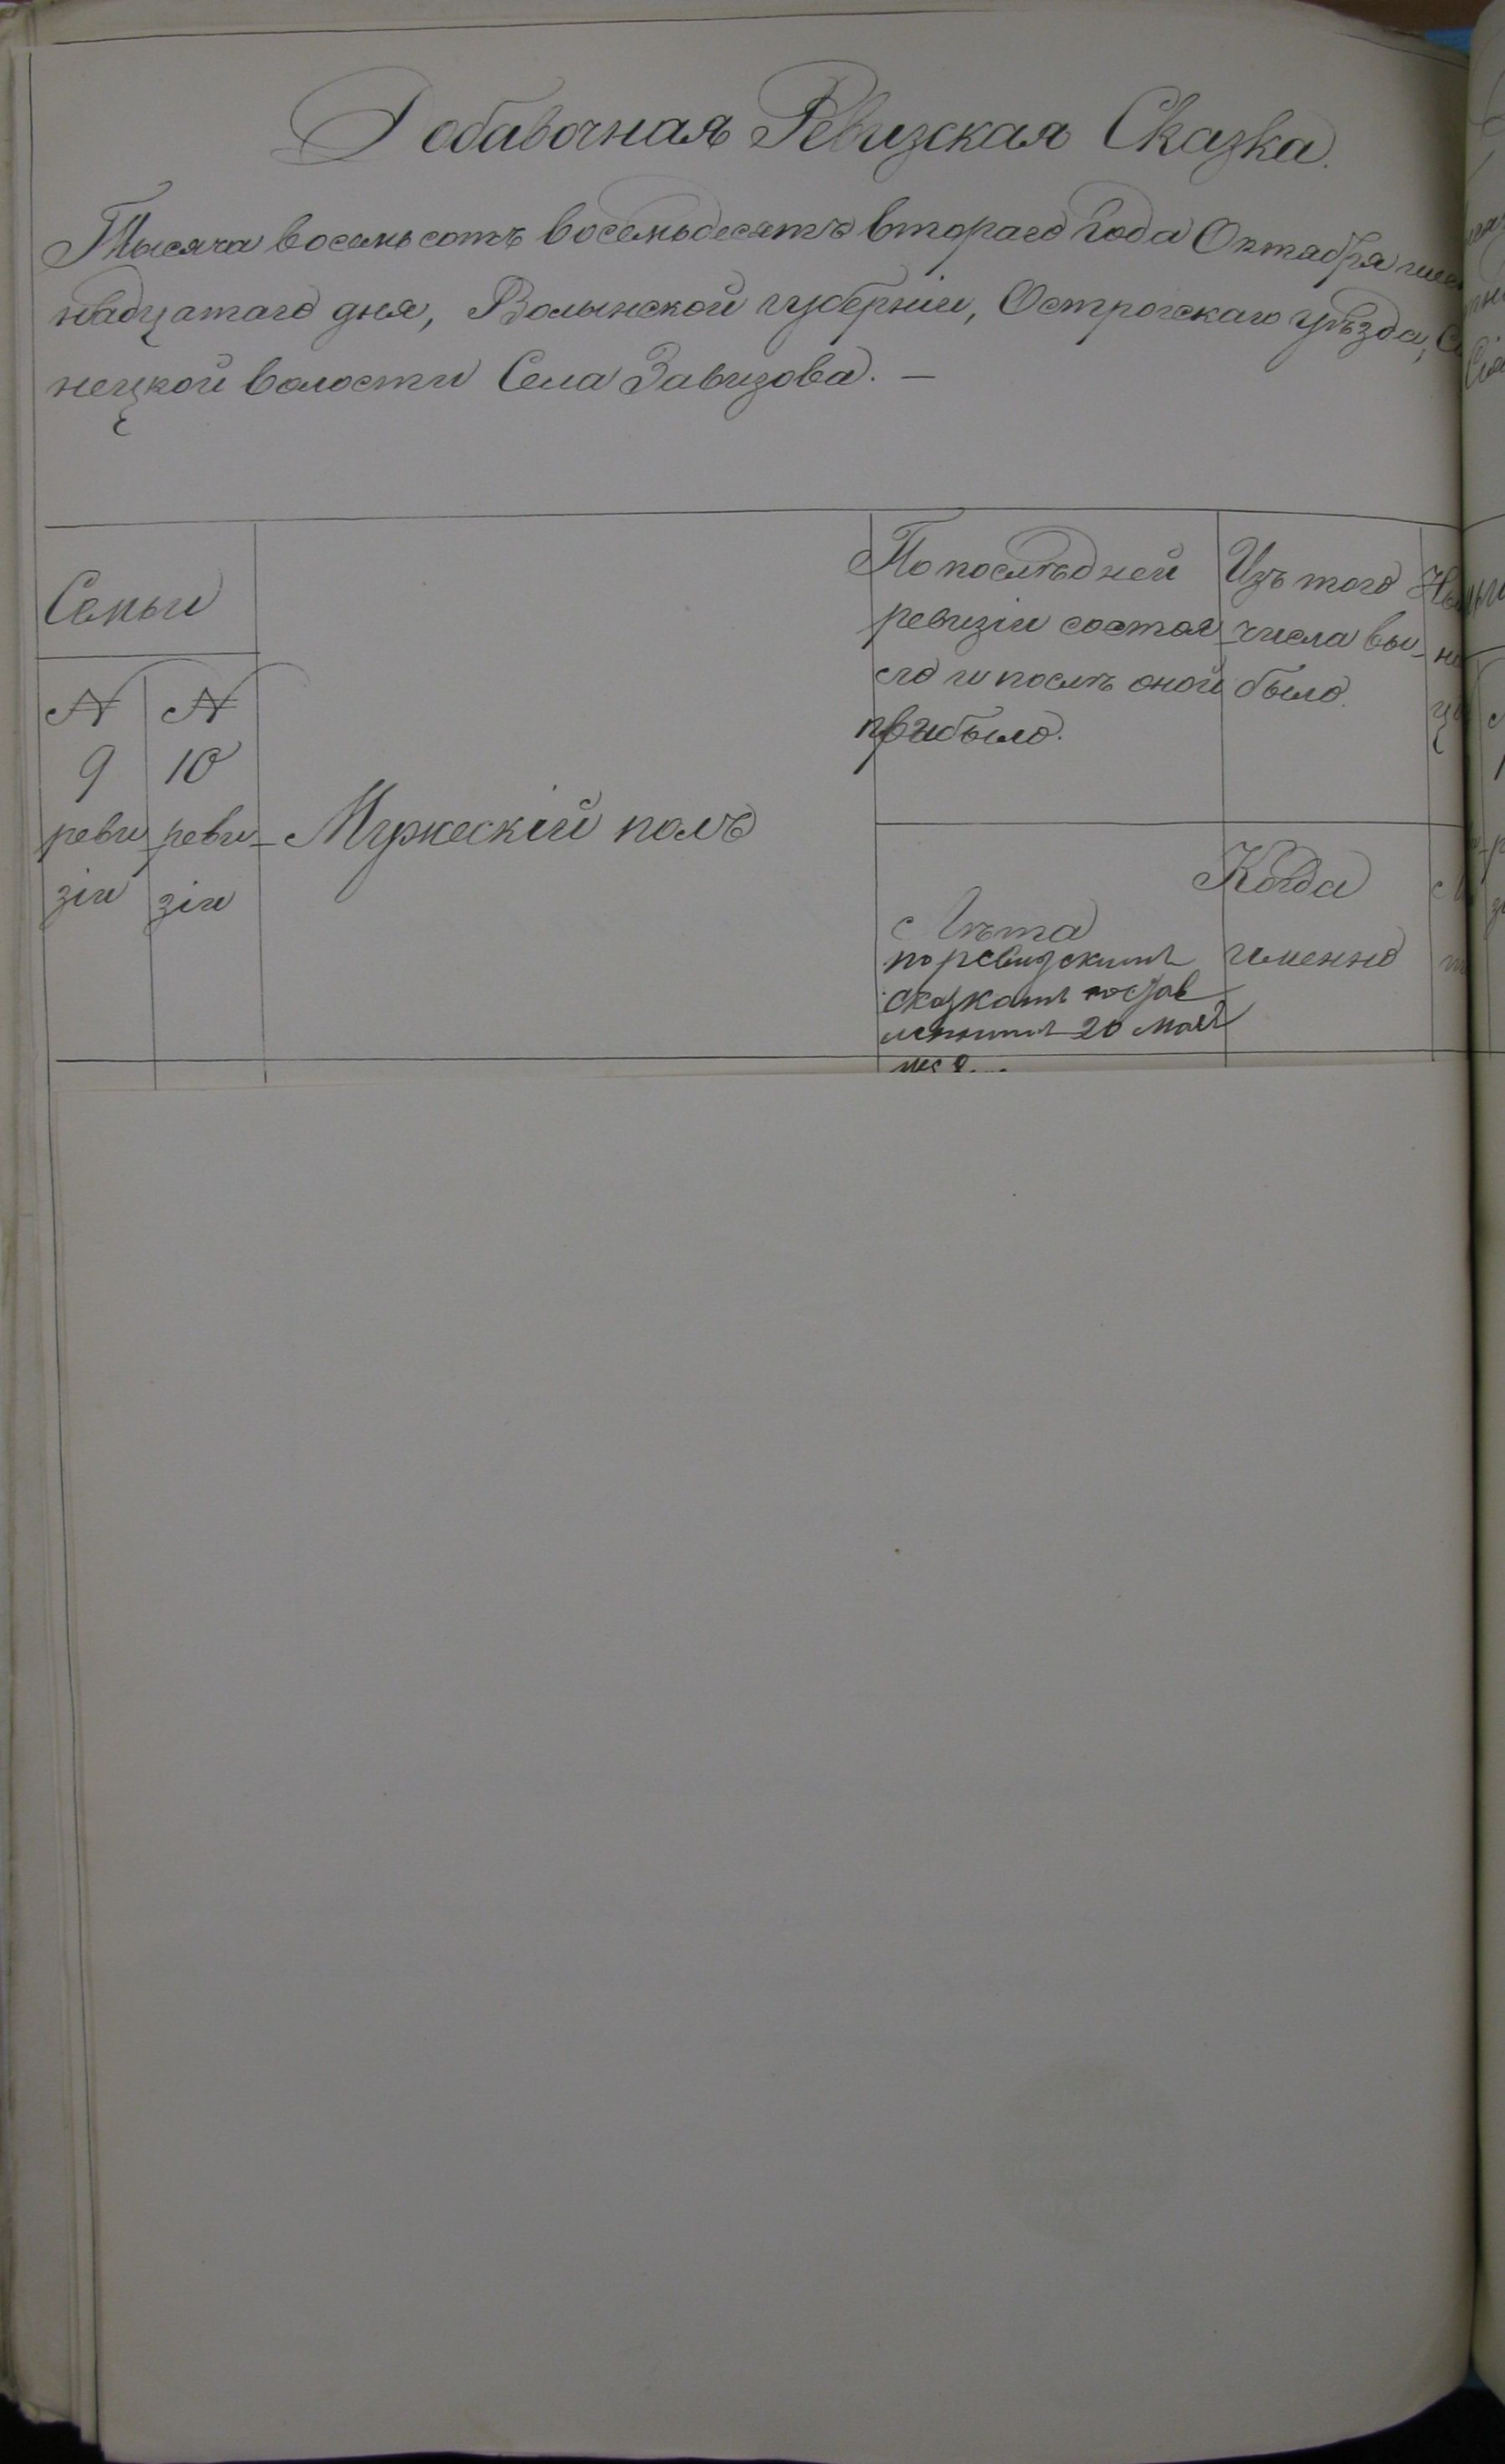 Добавочная Ревизская Сказка.
Тысяча восемьсотъ восемьдесятъ втораго года Октября шес
надцатаго дня, Волынской губерніи, Острогскаго уѣзда, С
нецкой волости Села Завизова. —
Семьи
№ 9 ревизіи
№ 10 реви-зіи
Мужескій полъ
По послѣдней
ревизіи состоя-
ло и послѣ оной
прибыло.
Лѣта
по ревизскимъ
сказкамъ состав
леннымъ 20 мая
Изъ того
числа вы-
было.
Когда
именно